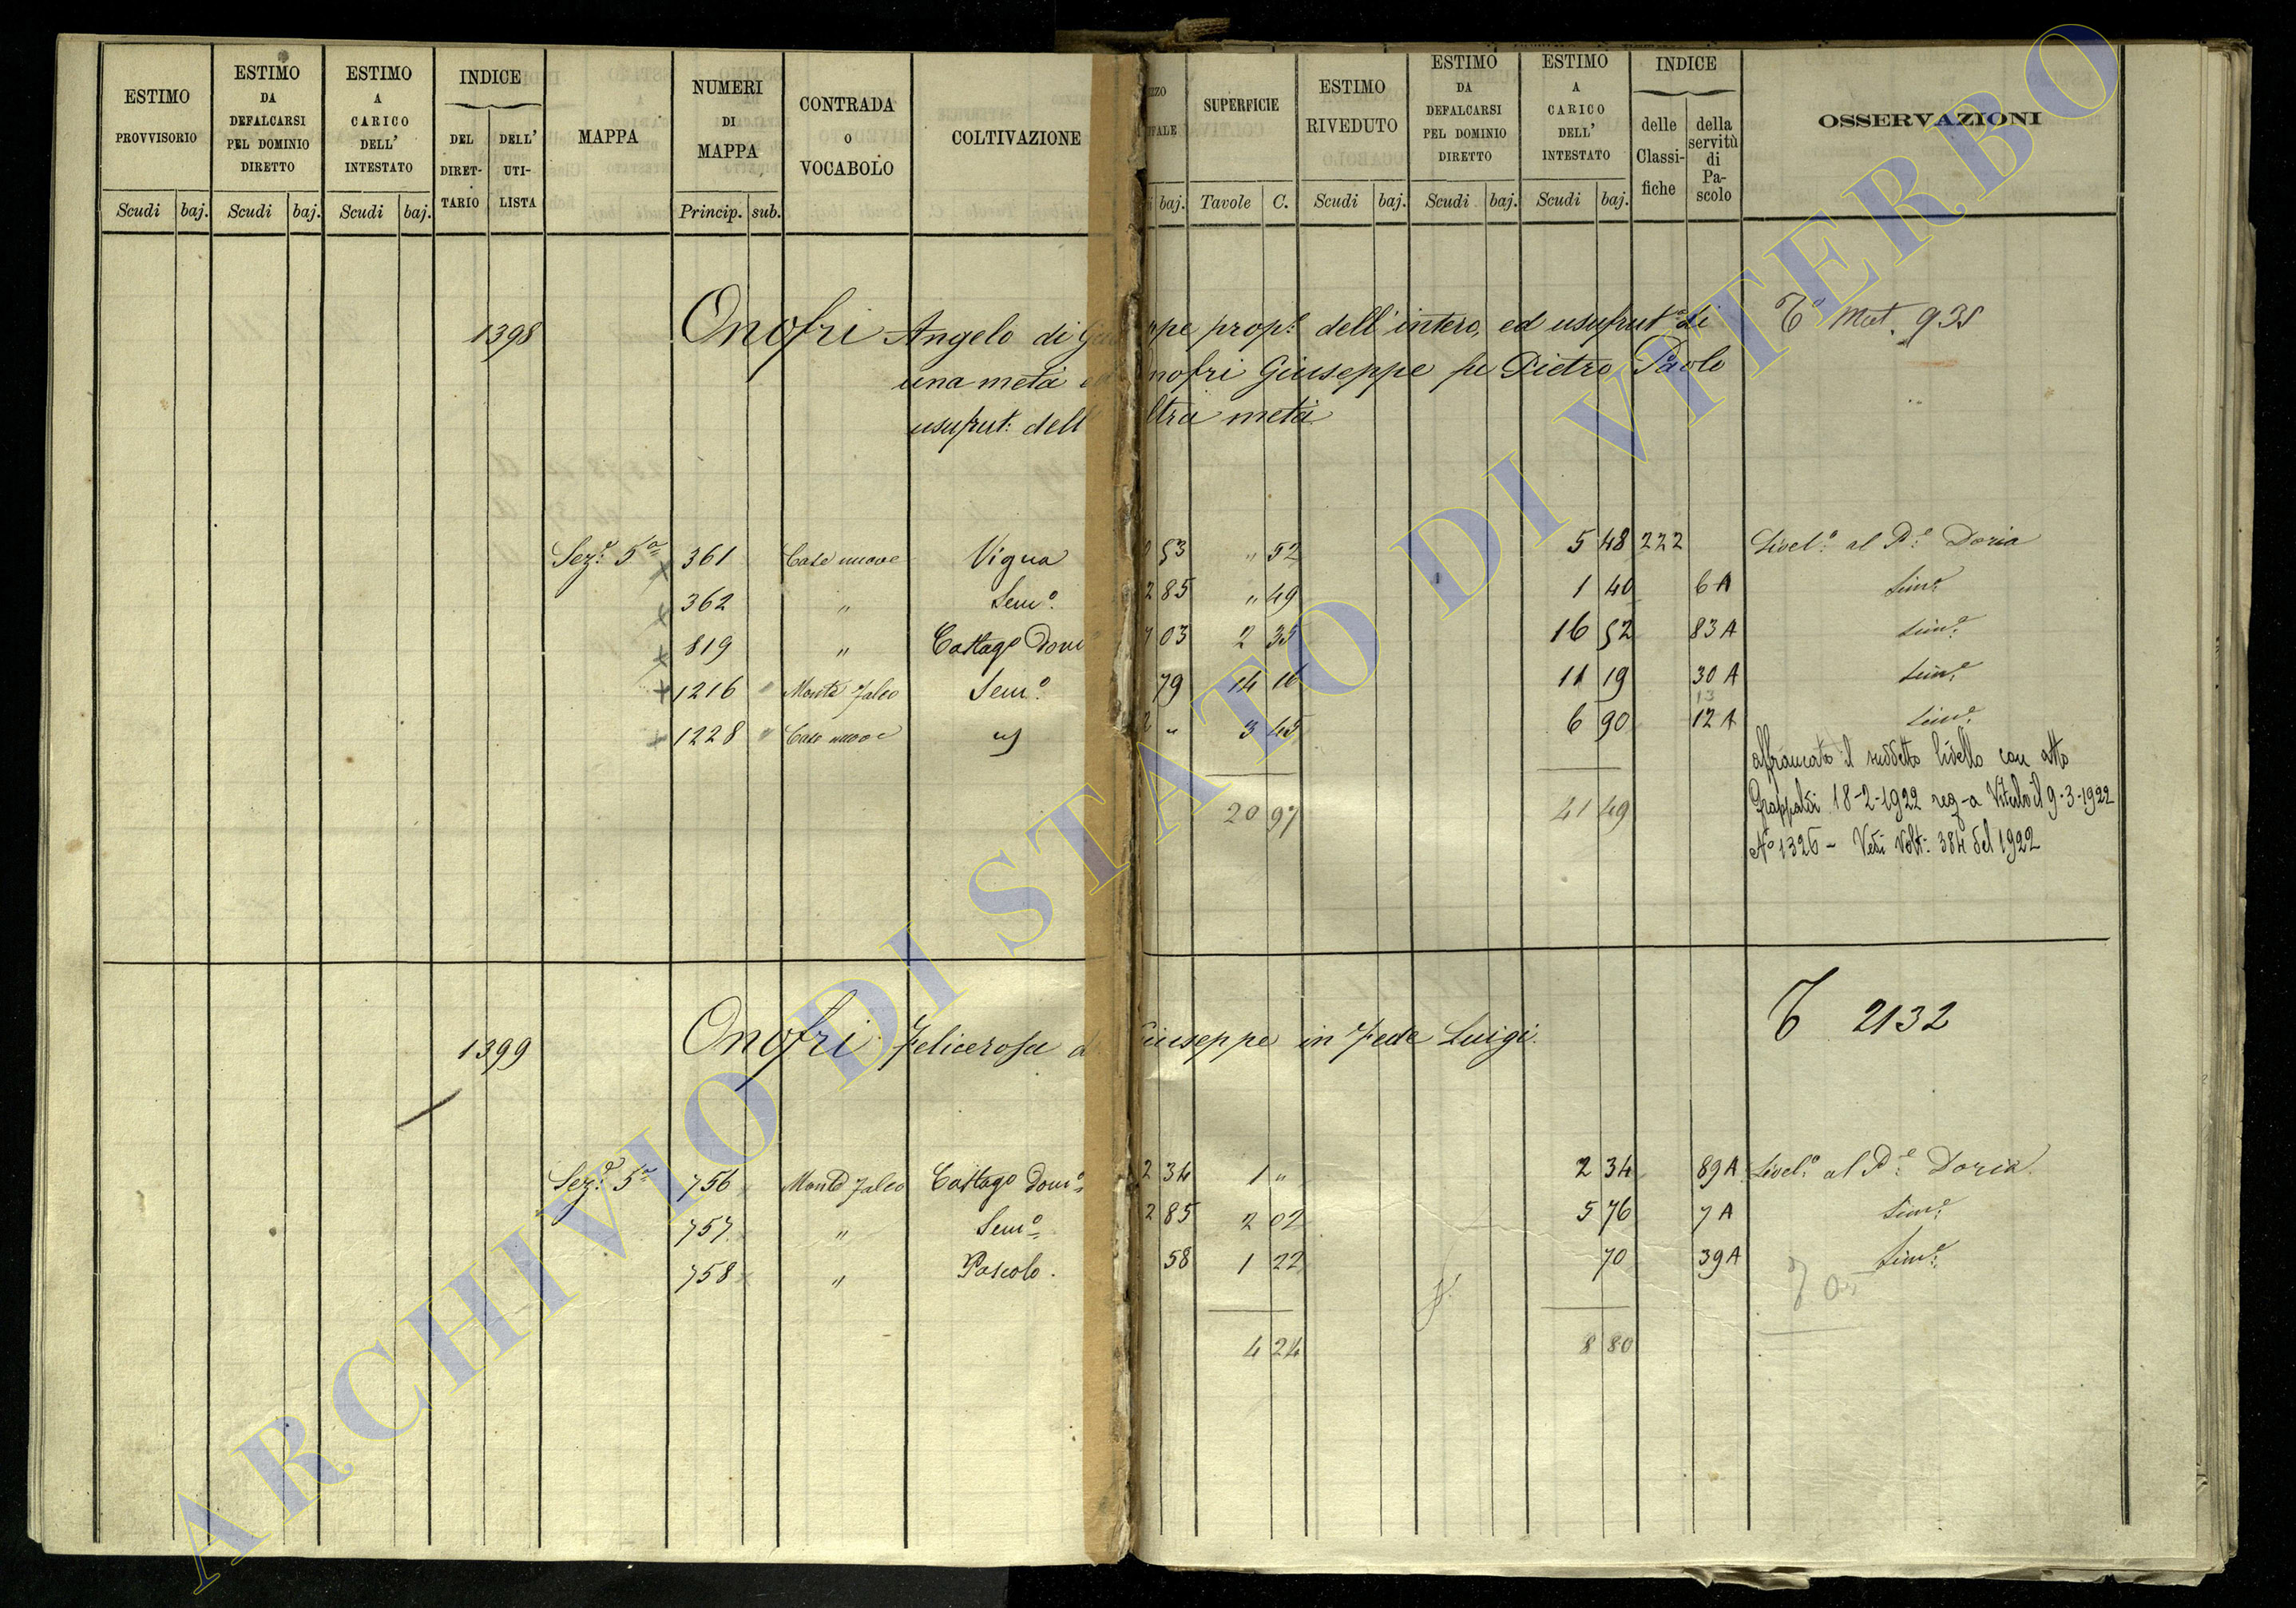 ESTIMO PROVVISORIO | ESTIMO DA DEFALCARSI PEL DOMINIO DIRETTO | ESTIMO A CARICO DELL' INTESTATO | INDICE DEL DIRETTARIO | DELL' UTILISTA | MAPPA | NUMERI DI MAPPA | CONTRADA O VOCABOLO | COLTIVAZIONE | SUPERFICIE | ESTIMO RIVEDUTO | ESTIMO DA DEFALCARSI PEL DOMINIO DIRETTO | ESTIMO A CARICO DELL' INTESTATO | INDICE delle Classifiche | della servitù di Pascolo | OSSERVAZIONI
Scudi | baj. | Scudi | baj. | Scudi | baj. | Princip. | sub. | baj. | Tavole | C. | Scudi | baj. | Scudi | baj. | Scudi | baj.
1398 Onofri Angelo di Giuseppe prop.e dell'intero, ed usufrut.o di Mat. 935
una metà ed Onofri Giuseppe fu Pietro Paolo
usufrut: dell'altra metà
Sez.e 5a 361 Case nuove Vigna 53 " 52 5 48 222 Livel.o al P.e Doria
362 " Sem.o 2 85 " 49 1 40 6 A Sim.e
819 " Castag.o Dom 03 2 35 16 52 83 A Sim.e
1216 Monte Falco Sem.o 79 14 16 11 19 30 A Sim.e
13
1228 Case nuove " 2 " 3 45 6 90 12 A Sim.e
affrancato il suddetto livello con atto
18-2-1922 reg-a Viterbo il 9-3-1922
20 97 41 49
No 1326 - Vedi Volt: 384 del 1922
1399 Onofri Felicerosa di Giuseppe in Fede Luigi. 2132
Sez.e 5a 756 Monte Falco Castag.o Dom.o 2 34 1 " 2 34 89 A Livel.o al P.e Doria
757 " Sem.o 2 85 2 02 5 76 7 A Sim.e
758 " Pascolo. 58 1 22 70 39 A Sim.e
4 24 8 80
ARCHIVIO DI STATO DI VITERBO